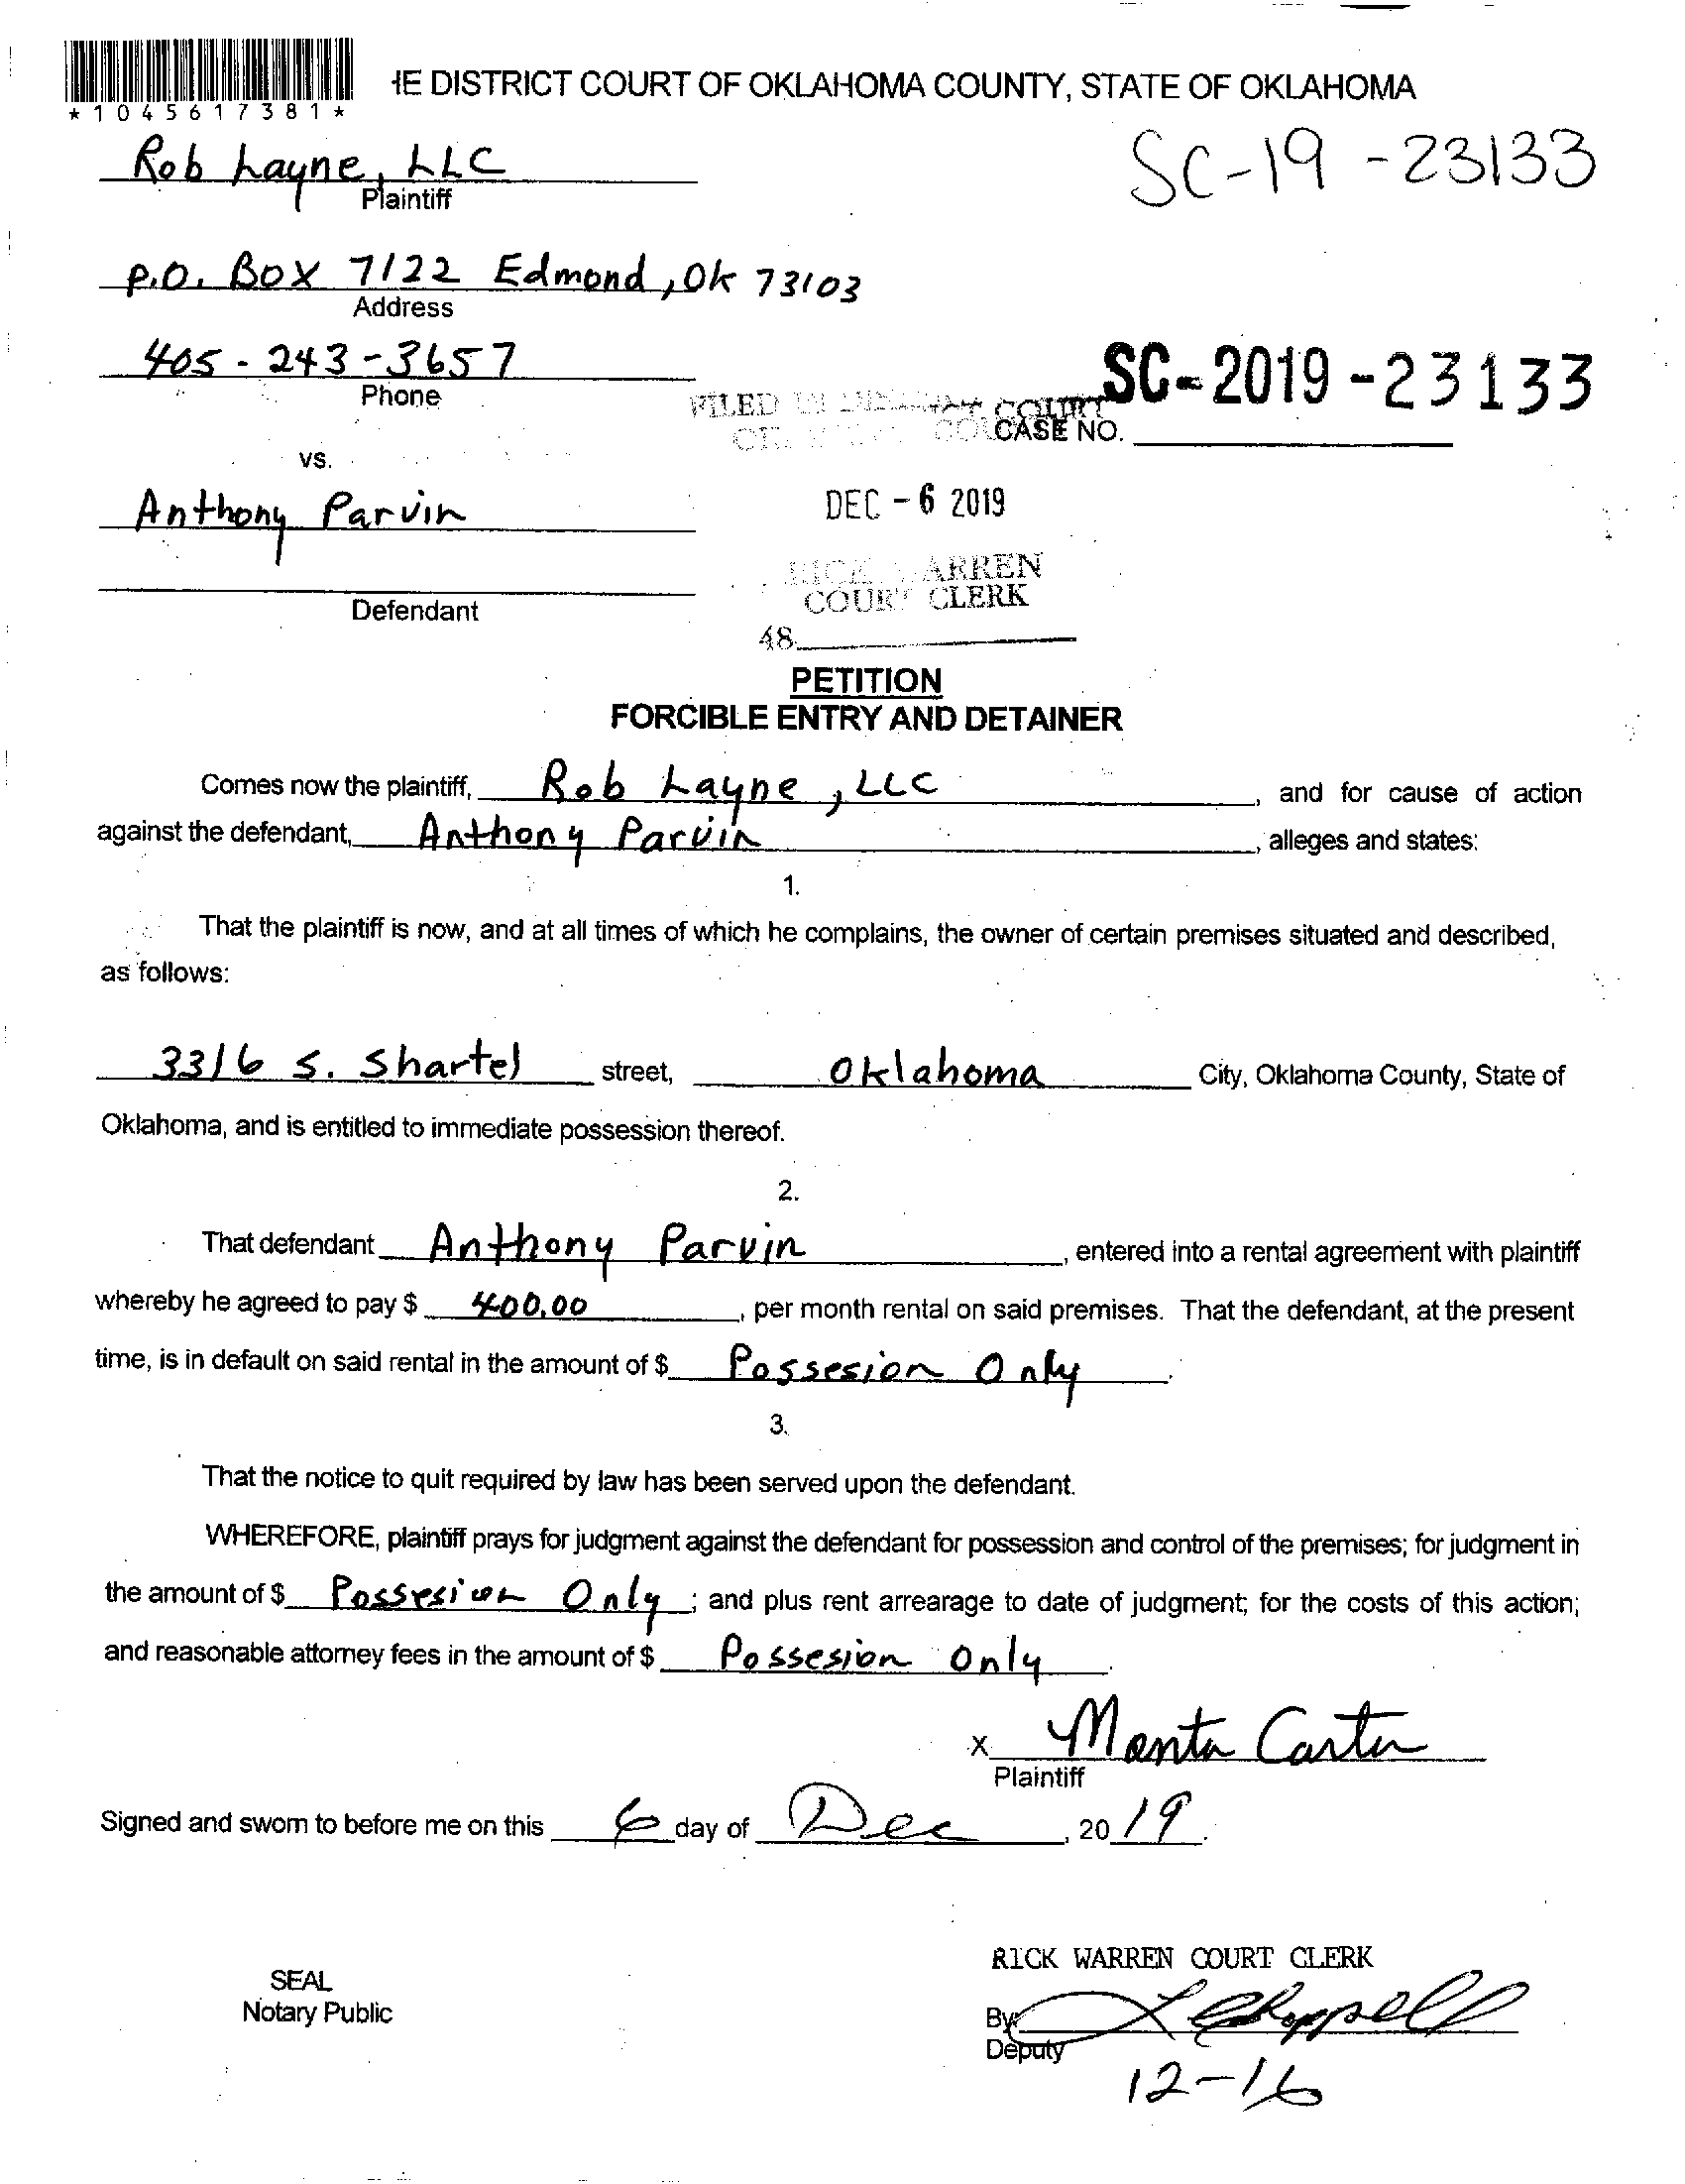 *1045617381*
HE DISTRICT COURT OF OKLAHOMA COUNTY, STATE OF OKLAHOMA
Rob Layne, LLC
Plaintiff
SC-19-23133
P.O. Box 7122 Edmond, Ok 73103
Address
405-243-3657
Phone
SC-2019-23133
FILED IN COURT
CASE NO.
vs.
Anthony Parvin
DEC - 6 2019
RICK WARREN
COURT CLERK
Defendant
48
PETITION
FORCIBLE ENTRY AND DETAINER
Comes now the plaintiff, Rob Layne, LLC, and for cause of action
against the defendant, Anthony Parvin, alleges and states:
1.
That the plaintiff is now, and at all times of which he complains, the owner of certain premises situated and described,
as follows:
3316 S. Shartel street, Oklahoma City, Oklahoma County, State of
Oklahoma, and is entitled to immediate possession thereof.
2.
That defendant Anthony Parvin, entered into a rental agreement with plaintiff
whereby he agreed to pay $ 400.00, per month rental on said premises. That the defendant, at the present
time, is in default on said rental in the amount of $ Possesion Only.
3.
That the notice to quit required by law has been served upon the defendant.
WHEREFORE, plaintiff prays for judgment against the defendant for possession and control of the premises; for judgment in
the amount of $ Possesion Only; and plus rent arrearage to date of judgment; for the costs of this action;
and reasonable attorney fees in the amount of $ Possesion Only.
x Monta Carter
Plaintiff
Signed and sworn to before me on this 6 day of Dec, 20 19.
RICK WARREN COURT CLERK
SEAL
Notary Public
By: L Chappell
Deputy
12-16